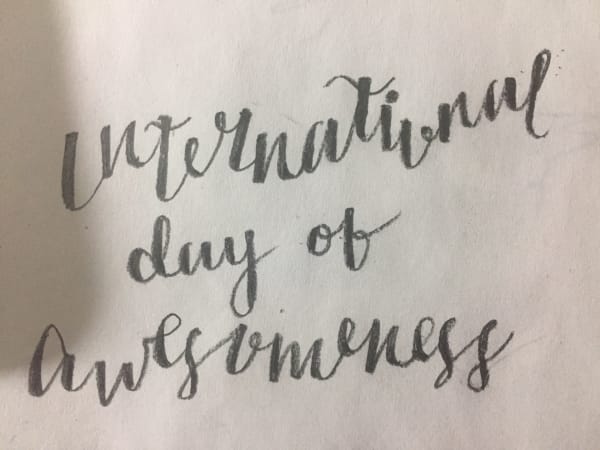 International
day of
Awesomeness